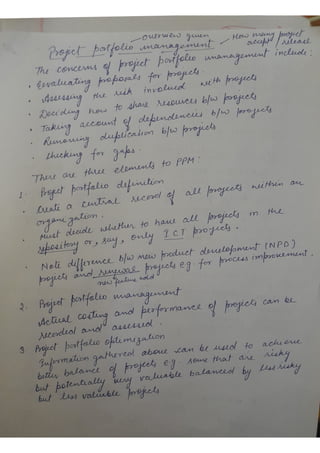 overview given
How many project
accept / release
Project portfolio management
The concerns of project portfolio management include:
• Evaluating proposals for projects.
• Assessing the risk involved with projects
• Deciding how to share resources b/w projects
• Taking account of dependencies b/w projects
• Removing duplication b/w projects
• Checking for gaps.
There are three elements to PPM:
1. Project portfolio definition
• Create a central record of all projects within an
organization.
• Must decide whether to have all projects in the
repository or, say, only ICT projects.
• Note difference b/w new product development (NPD)
projects and renewal projects eg. for process improvement.
new
2. Project portfolio management
Actual costing and performance of projects can be
recorded and assessed.
3 Project portfolio optimization
Information gathered above can be used to achieve
better balance of projects eg. some that are risky
but potentially very valuable balanced by less risky
but less valuable projects